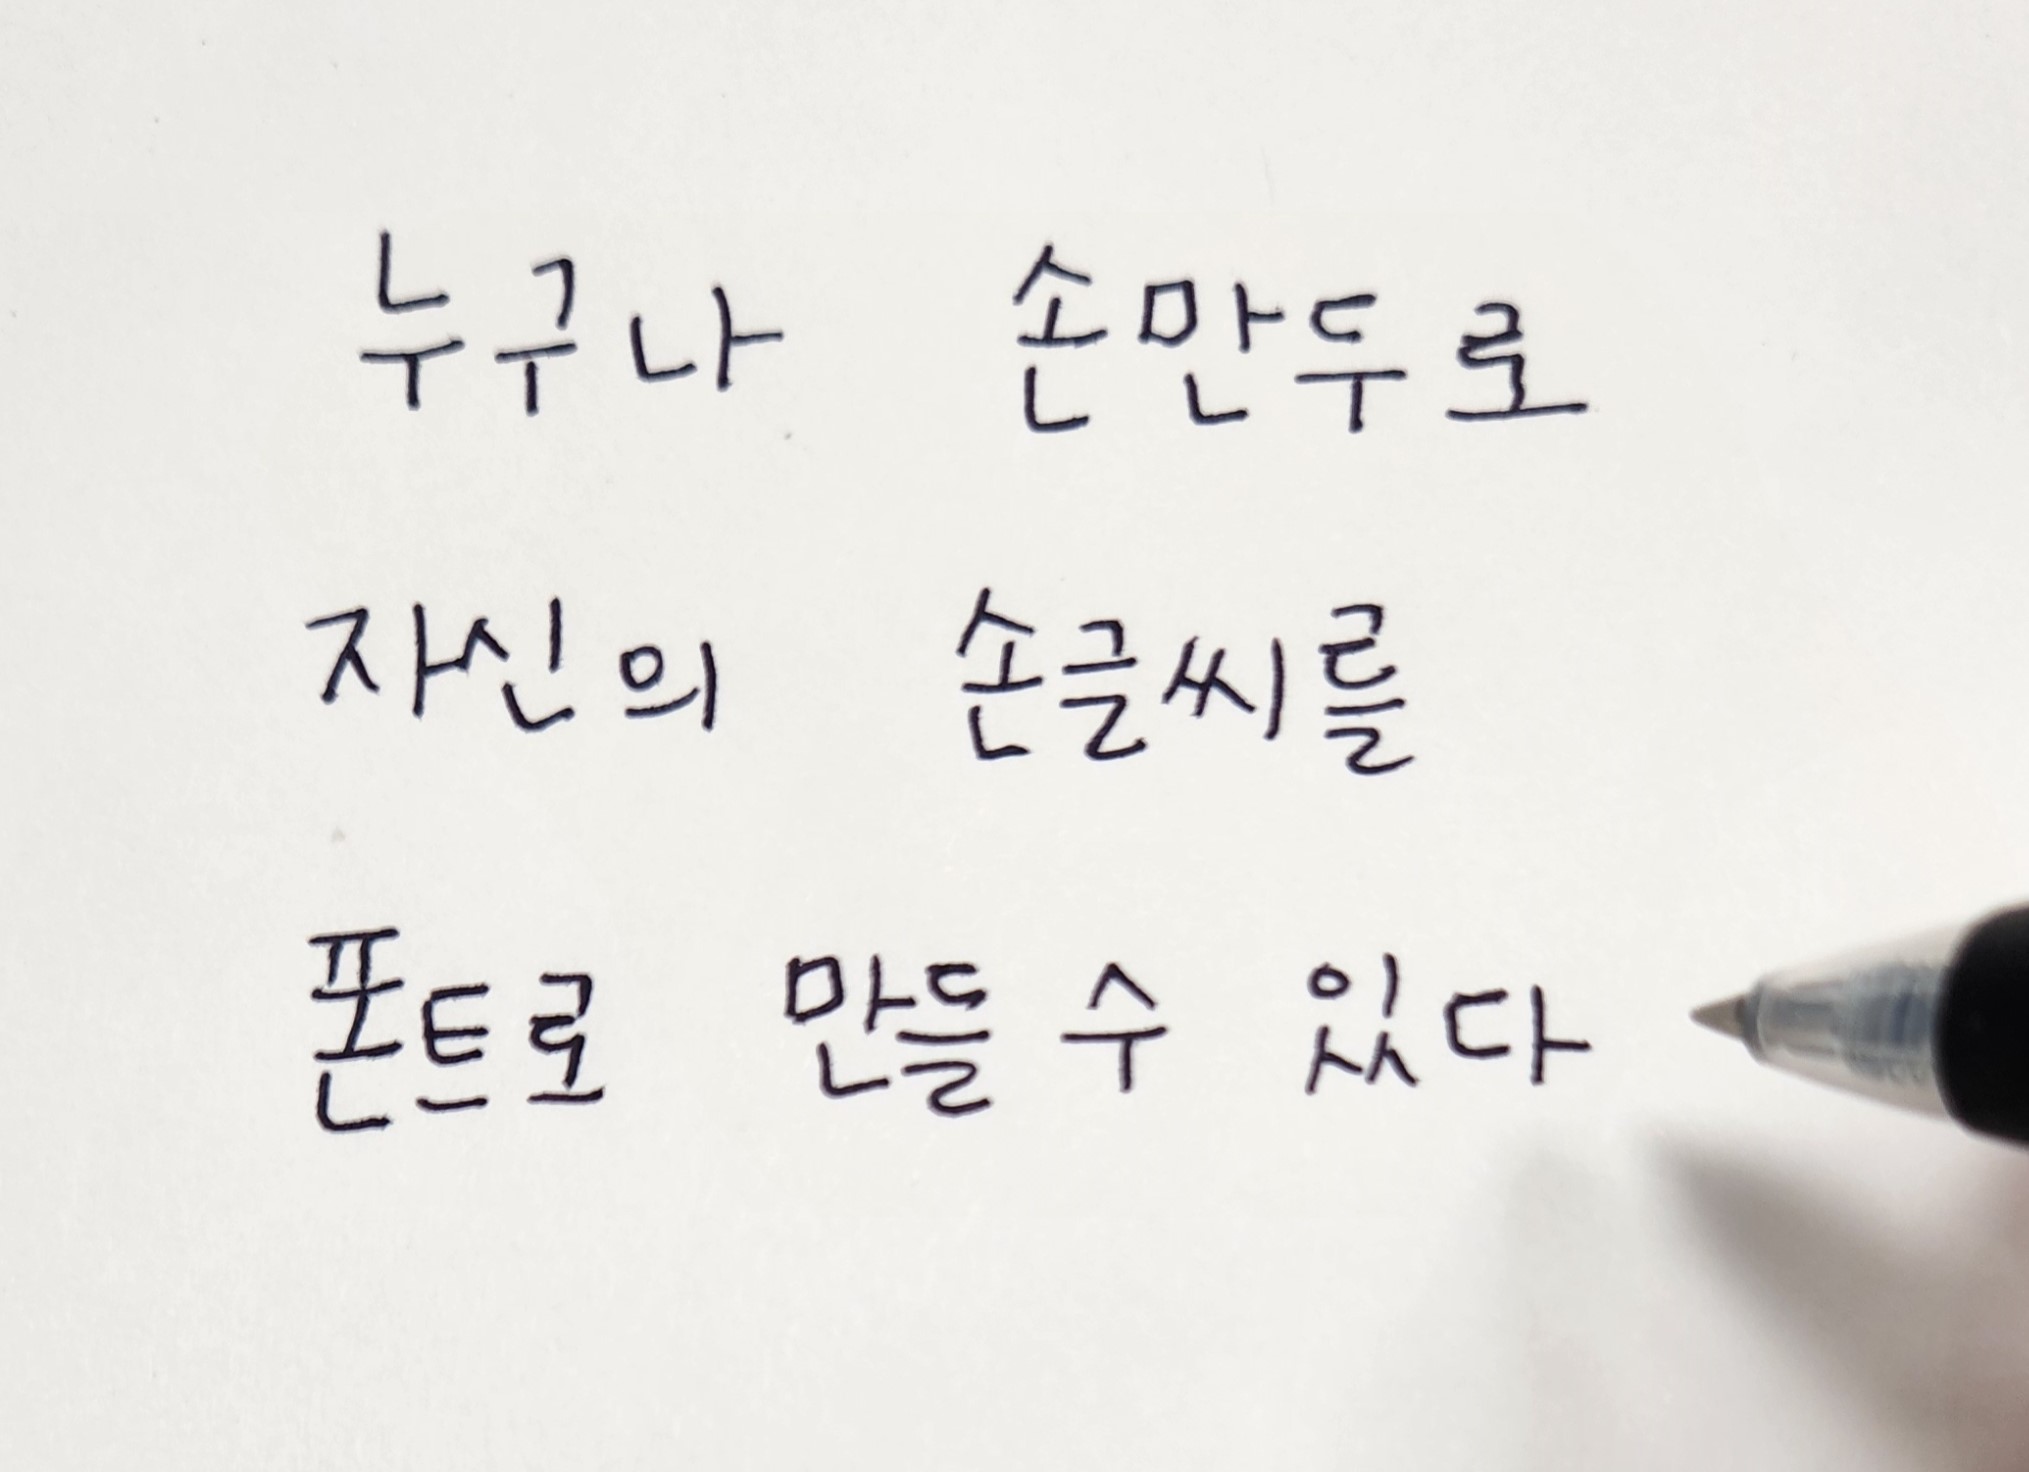 누구나 손만두로
자신의 손글씨를
폰트로 만들 수 있다